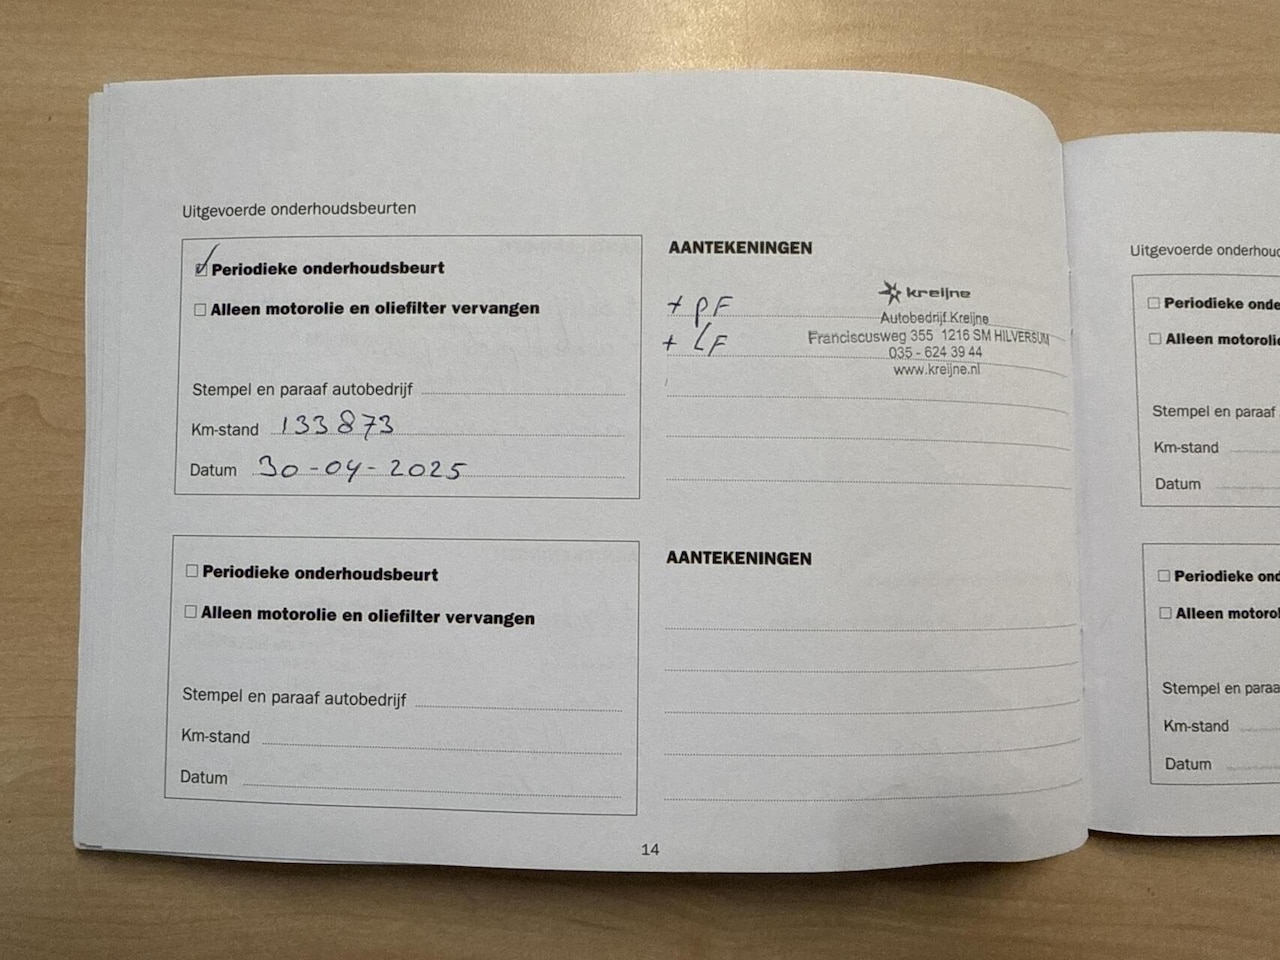 Uitgevoerde onderhoudsbeurten
Periodieke onderhoudsbeurt
Alleen motorolie en oliefilter vervangen
Stempel en paraaf autobedrijf
Km-stand 133873
Datum 30-04-2025
AANTEKENINGEN
+ PF
+ LF
kreijne
Autobedrijf Kreijne
Franciscusweg 355 1216 SM HILVERSUM
035 - 624 39 44
www.kreijne.nl
Periodieke onderhoudsbeurt
Alleen motorolie en oliefilter vervangen
Stempel en paraaf autobedrijf
Km-stand
Datum
AANTEKENINGEN
14
Uitgevoerde onderhoud
Periodieke onde
Alleen motorolie
Stempel en paraaf
Km-stand
Datum
Periodieke ond
Alleen motorol
Stempel en paraa
Km-stand
Datum